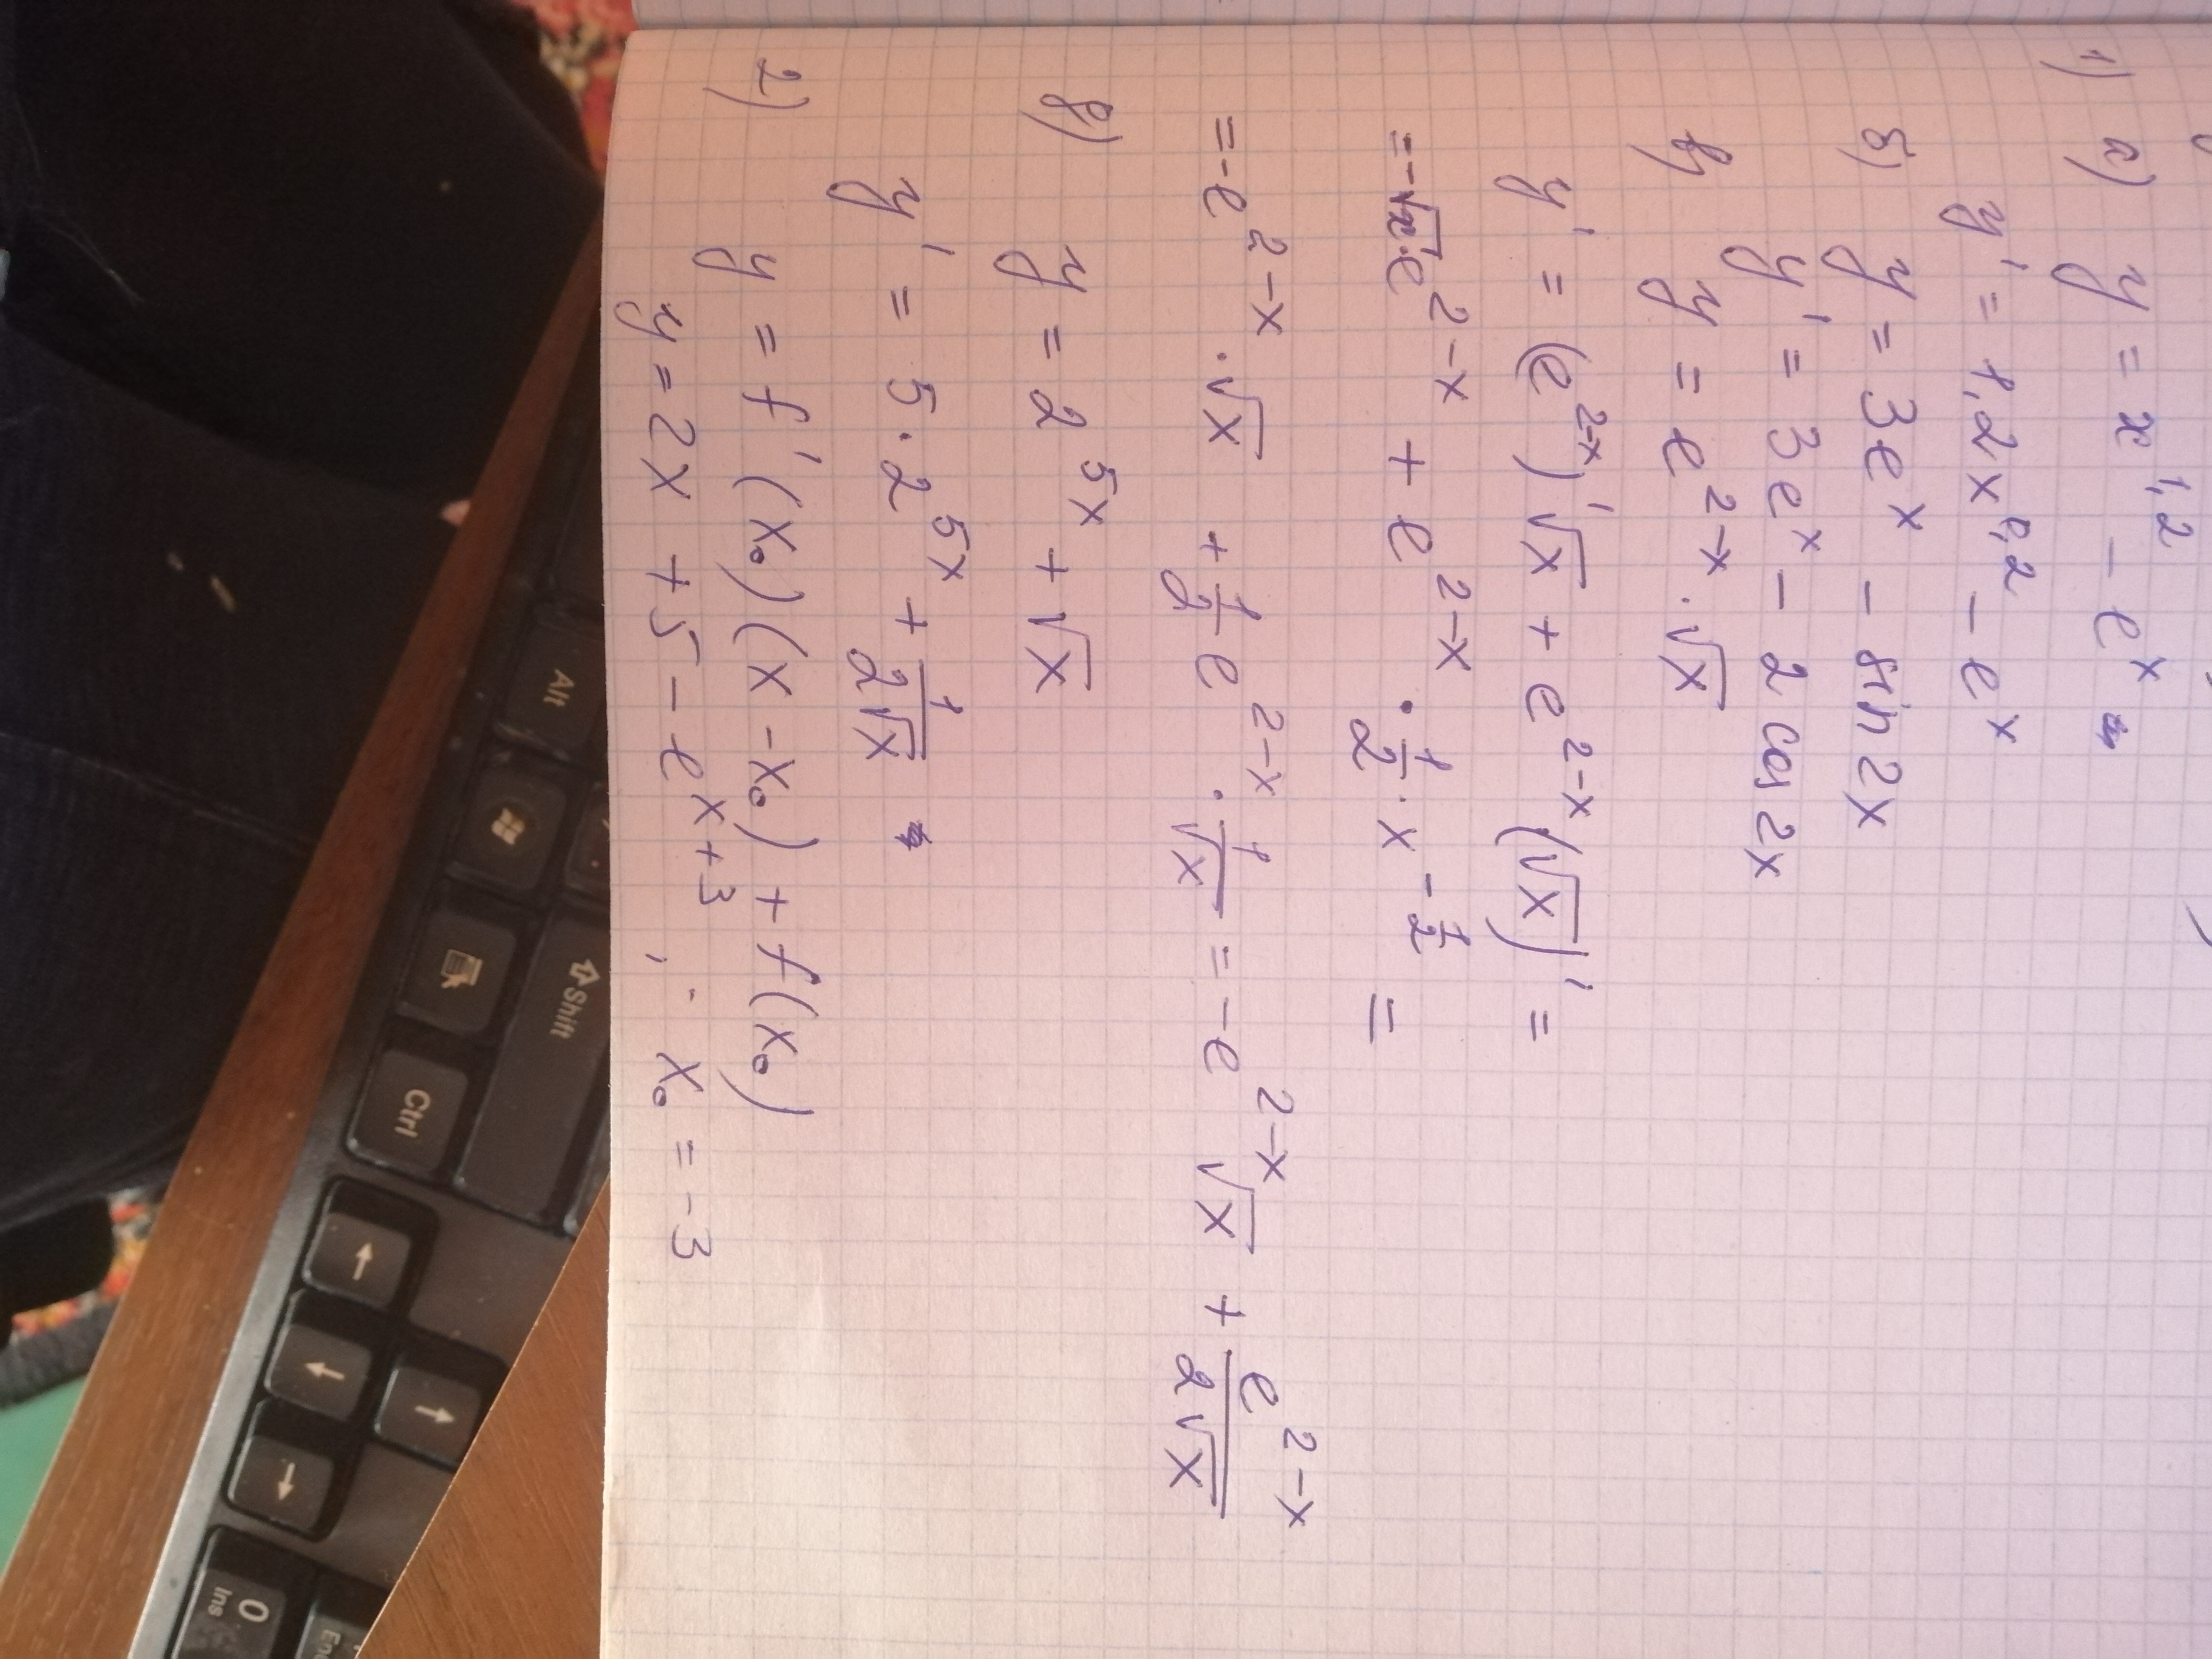 1) а) y = x^1,2 - e^x
y' = 1,2x^0,2 - e^x
б) y = 3e^x - sin 2x
y' = 3e^x - 2 cos 2x
в) y = e^2-x · √x
y' = (e^2-x)' √x + e^2-x (√x)' =
= -√x · e^2-x + e^2-x · 1/2 · x^-1/2 =
= -e^2-x · √x + 1/2 e^2-x · 1/√x = -e^2-x √x + e^2-x/2√x
в) y = 2^5x + √x
y' = 5 · 2^5x + 1/2√x
2) y = f'(x₀)(x - x₀) + f(x₀)
y = 2x + 5 - e^x+3, x₀ = -3
Alt
Shift
Ctrl
0
Ins